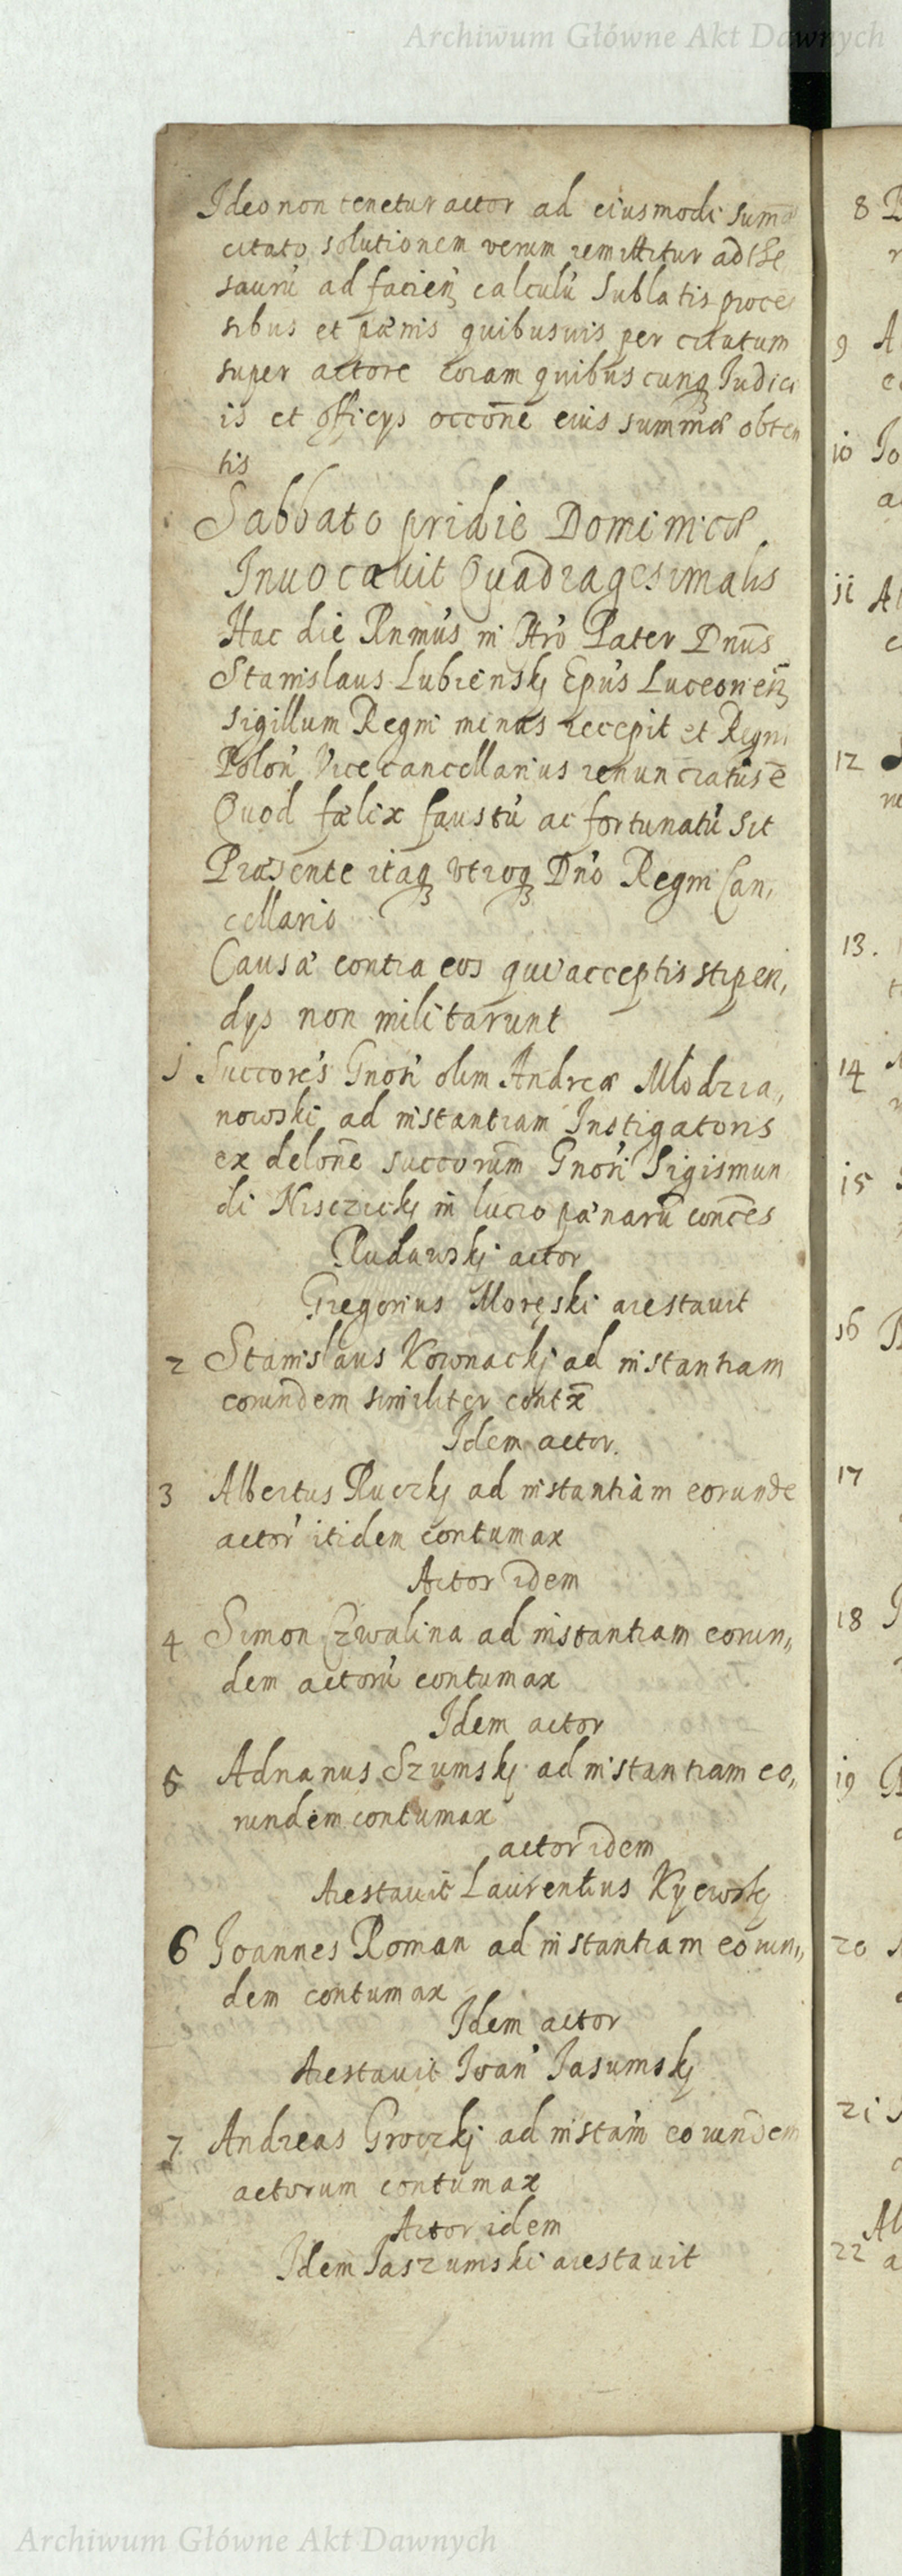 Archiwum Główne Akt Dawnych
Ideo non tenetur actor ad eiusmodi summ
citato solutionem verum remittitur ad the
saurũ ad facien calculũ sublatis proce
sibus et pænis quibusuis per citatum
super actore coram quibuscunq Iudici
is et officys occone eius summæ obten
tis
Sabbato pridie Dominicæ
Inuocauit Quadragesimalis
Hac die Rnmus in Xro Pater Dnus
Stanislaus Lubiensky Epus Luceorien
sigillum Regni minus recepit et Regni
Polon Vicecancellarius renunciatus e
Quod fælix faustũ ac fortunatũ sit
Præsente itaq vtroq Dno Regni Can,
cellario
Causa contra eos qui acceptis stipen,
dys non militarunt
1 Succores Gnosi olim Andreæ Mlodzia,
nowski ad instantiam Instigatoris
ex delone succorum Gnosi Sigismun
di Nisczicky in lucro pænarũ conces
Rudawskj actor
Gregorius Moręski arestauit
2 Stanislaus Kownackj ad instantiam
eorundem similiter contx
Idem actor.
3 Albertus Ruczkj ad instantiam eorunde
actor itidem contumax
Actor idem
4 Simon Czwalina ad instantiam eorun,,
dem actorũ contumax
Idem actor
5 Adrianus Szumskj ad instantiam eo,,
rundem contumax
actor idem
Arestauit Laurentius Kyewskj
6 Joannes Roman ad instantiam eorun,,
dem contumax
Idem actor
Arestauit Ioan Jasumskj
7 Andreas Groczkj ad instam eorundem
actorum contumax
Actor idem
Idem Jaszumski arestauit
8
9 A
10 Jo
11
12
13.
14
15
16
17
18
19
20
21
22
Archiwum Główne Akt Dawnych